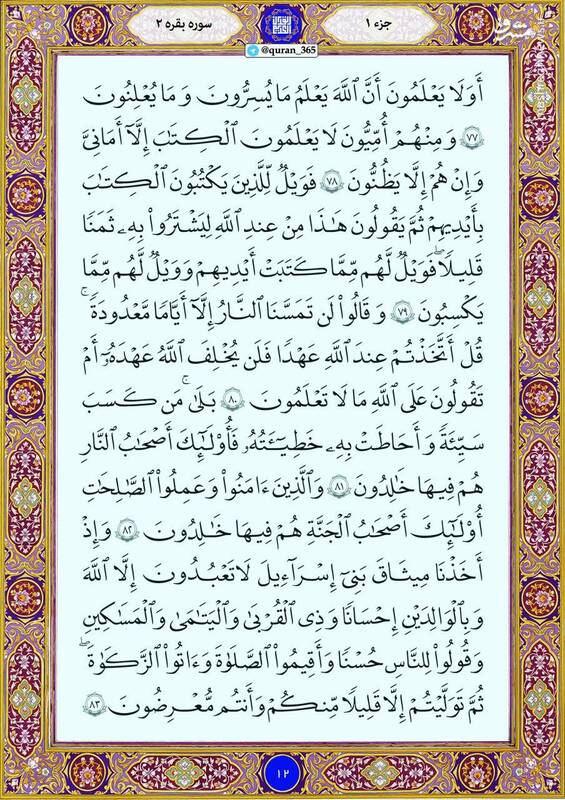 جزء ۱
سوره بقره ۲
@quran_365
أَوَلَا يَعْلَمُونَ أَنَّ ٱللَّهَ يَعْلَمُ مَا يُسِرُّونَ وَ مَا يُعْلِنُونَ
۷۷ وَ مِنْهُمْ أُمِّيُّونَ لَا يَعْلَمُونَ ٱلْكِتَٰبَ إِلَّآ أَمَانِىَّ
وَ إِنْ هُمْ إِلَّا يَظُنُّونَ ۷۸ فَوَيْلٌ لِّلَّذِينَ يَكْتُبُونَ ٱلْكِتَٰبَ
بِأَيْدِيهِمْ ثُمَّ يَقُولُونَ هَٰذَا مِنْ عِندِ ٱللَّهِ لِيَشْتَرُوا۟ بِهِۦ ثَمَنًا
قَلِيلًا ۖ فَوَيْلٌ لَّهُم مِّمَّا كَتَبَتْ أَيْدِيهِمْ وَوَيْلٌ لَّهُم مِّمَّا
يَكْسِبُونَ ۷۹ وَ قَالُوا۟ لَن تَمَسَّنَا ٱلنَّارُ إِلَّآ أَيَّامًا مَّعْدُودَةً ۚ
قُلْ أَتَّخَذْتُمْ عِندَ ٱللَّهِ عَهْدًا فَلَن يُخْلِفَ ٱللَّهُ عَهْدَهُۥٓ أَمْ
تَقُولُونَ عَلَى ٱللَّهِ مَا لَا تَعْلَمُونَ ۸۰ بَلَىٰ ۚ مَن كَسَبَ
سَيِّئَةً وَ أَحَاطَتْ بِهِۦ خَطِيٓـَٔتُهُۥ فَأُو۟لَٰٓئِكَ أَصْحَٰبُ ٱلنَّارِ
هُمْ فِيهَا خَٰلِدُونَ ۸۱ وَٱلَّذِينَ ءَامَنُوا۟ وَعَمِلُوا۟ ٱلصَّٰلِحَٰتِ
أُو۟لَٰٓئِكَ أَصْحَٰبُ ٱلْجَنَّةِ هُمْ فِيهَا خَٰلِدُونَ ۸۲ وَ إِذْ
أَخَذْنَا مِيثَٰقَ بَنِىٓ إِسْرَآءِيلَ لَا تَعْبُدُونَ إِلَّا ٱللَّهَ
وَ بِٱلْوَٰلِدَيْنِ إِحْسَانًا وَ ذِى ٱلْقُرْبَىٰ وَٱلْيَتَٰمَىٰ وَٱلْمَسَٰكِينِ
وَ قُولُوا۟ لِلنَّاسِ حُسْنًا وَ أَقِيمُوا۟ ٱلصَّلَوٰةَ وَ ءَاتُوا۟ ٱلزَّكَوٰةَ ۖ
ثُمَّ تَوَلَّيْتُمْ إِلَّا قَلِيلًا مِّنكُمْ وَ أَنتُم مُّعْرِضُونَ ۸۳
۱۲